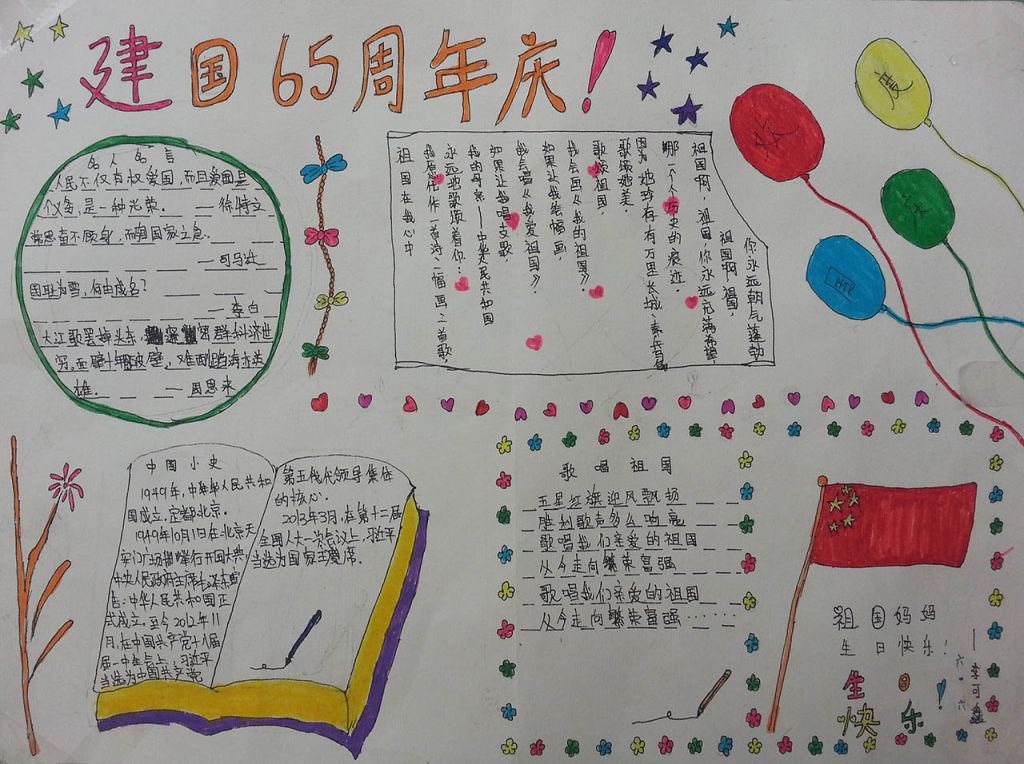 建国65周年庆！
名人名言
人民不仅有权爱国,而且爱国是
个义务,是一种光荣.
—徐特立
常思奋不顾身,而
国家之急.
—司马迁
国耻为雪,何由成名?
—李白
大江歌罢掉头东,
群科济世
穷.
十年
破壁,难
蹈海亦英
雄.
—周恩来
你永远朝气蓬勃
祖国啊,祖国,
祖国啊,祖国,你永远充满希望,
哪一个个历史的痕迹.
她珍存有万里长城、
歌颂她美.
歌颂祖国,
我会画《我的祖国》.
如果让我绘幅画,
我会唱《我爱祖国》.
如果让我唱支歌,
我的母亲——中华人民共和国
永远地歌颂着你:
作一首诗、一幅画、一首歌,
祖国在我心中
庆
国
中国小史
1949年,中华人民共和
国成立,定都北京.
1949年10月1日在北京天
安门广场
举行开国大典,
中央人民政府主席毛泽东宣
告:中华人民共和国正
式成立.至今2012年11
月,在中国共产党十八届
届一中全会上,习近平
当选为中国共产党
第五代代领导集体
的核心.
2013年3月,在第十二届
全国人大一次会议上,习近平
当选为国家主席.
歌唱祖国
五星红旗迎风飘扬
胜利歌声多么响亮
歌唱我们亲爱的祖国
从今走向繁荣富强
歌唱我们亲爱的祖国
从今走向繁荣富强……
祖国妈妈
生日快乐!
—李可鑫
六.六
生日!
快乐